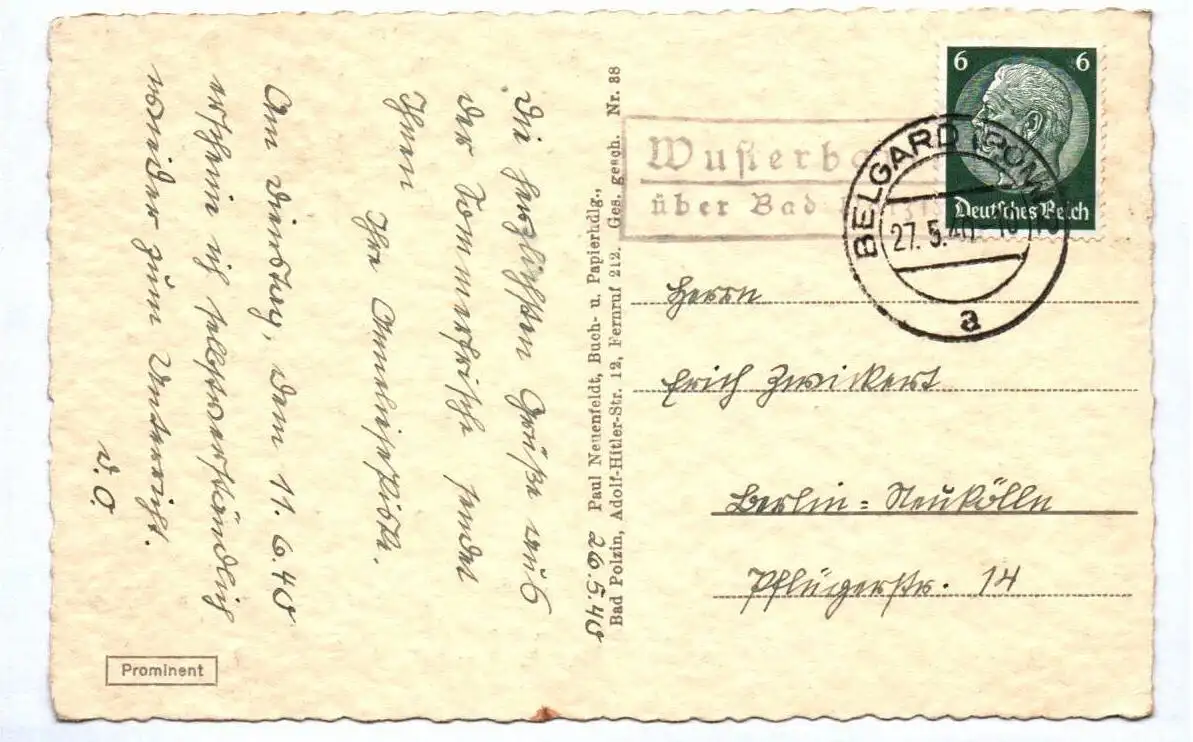 Die herzlichsten Grüße aus
der Sommerfrische sendet
Ihnen
Ihre
Am Dienstag, dem 11.6.40
erscheine ich selbstverständlich
wieder zum Unterricht.
D.O.
26.5.40
Paul Neuenfeldt, Buch- u. Papierhdlg.,
Bad Polzin, Adolf-Hitler-Str. 12, Fernruf 212. Ges. gesch. Nr. 38
Wusterba
über Bad
6 6
Deutsches Reich
BELGARD (POM
27.5.40
a
Herrn
Erich Zwickert
Berlin=Neukölln
Pflügerstr. 14
Prominent